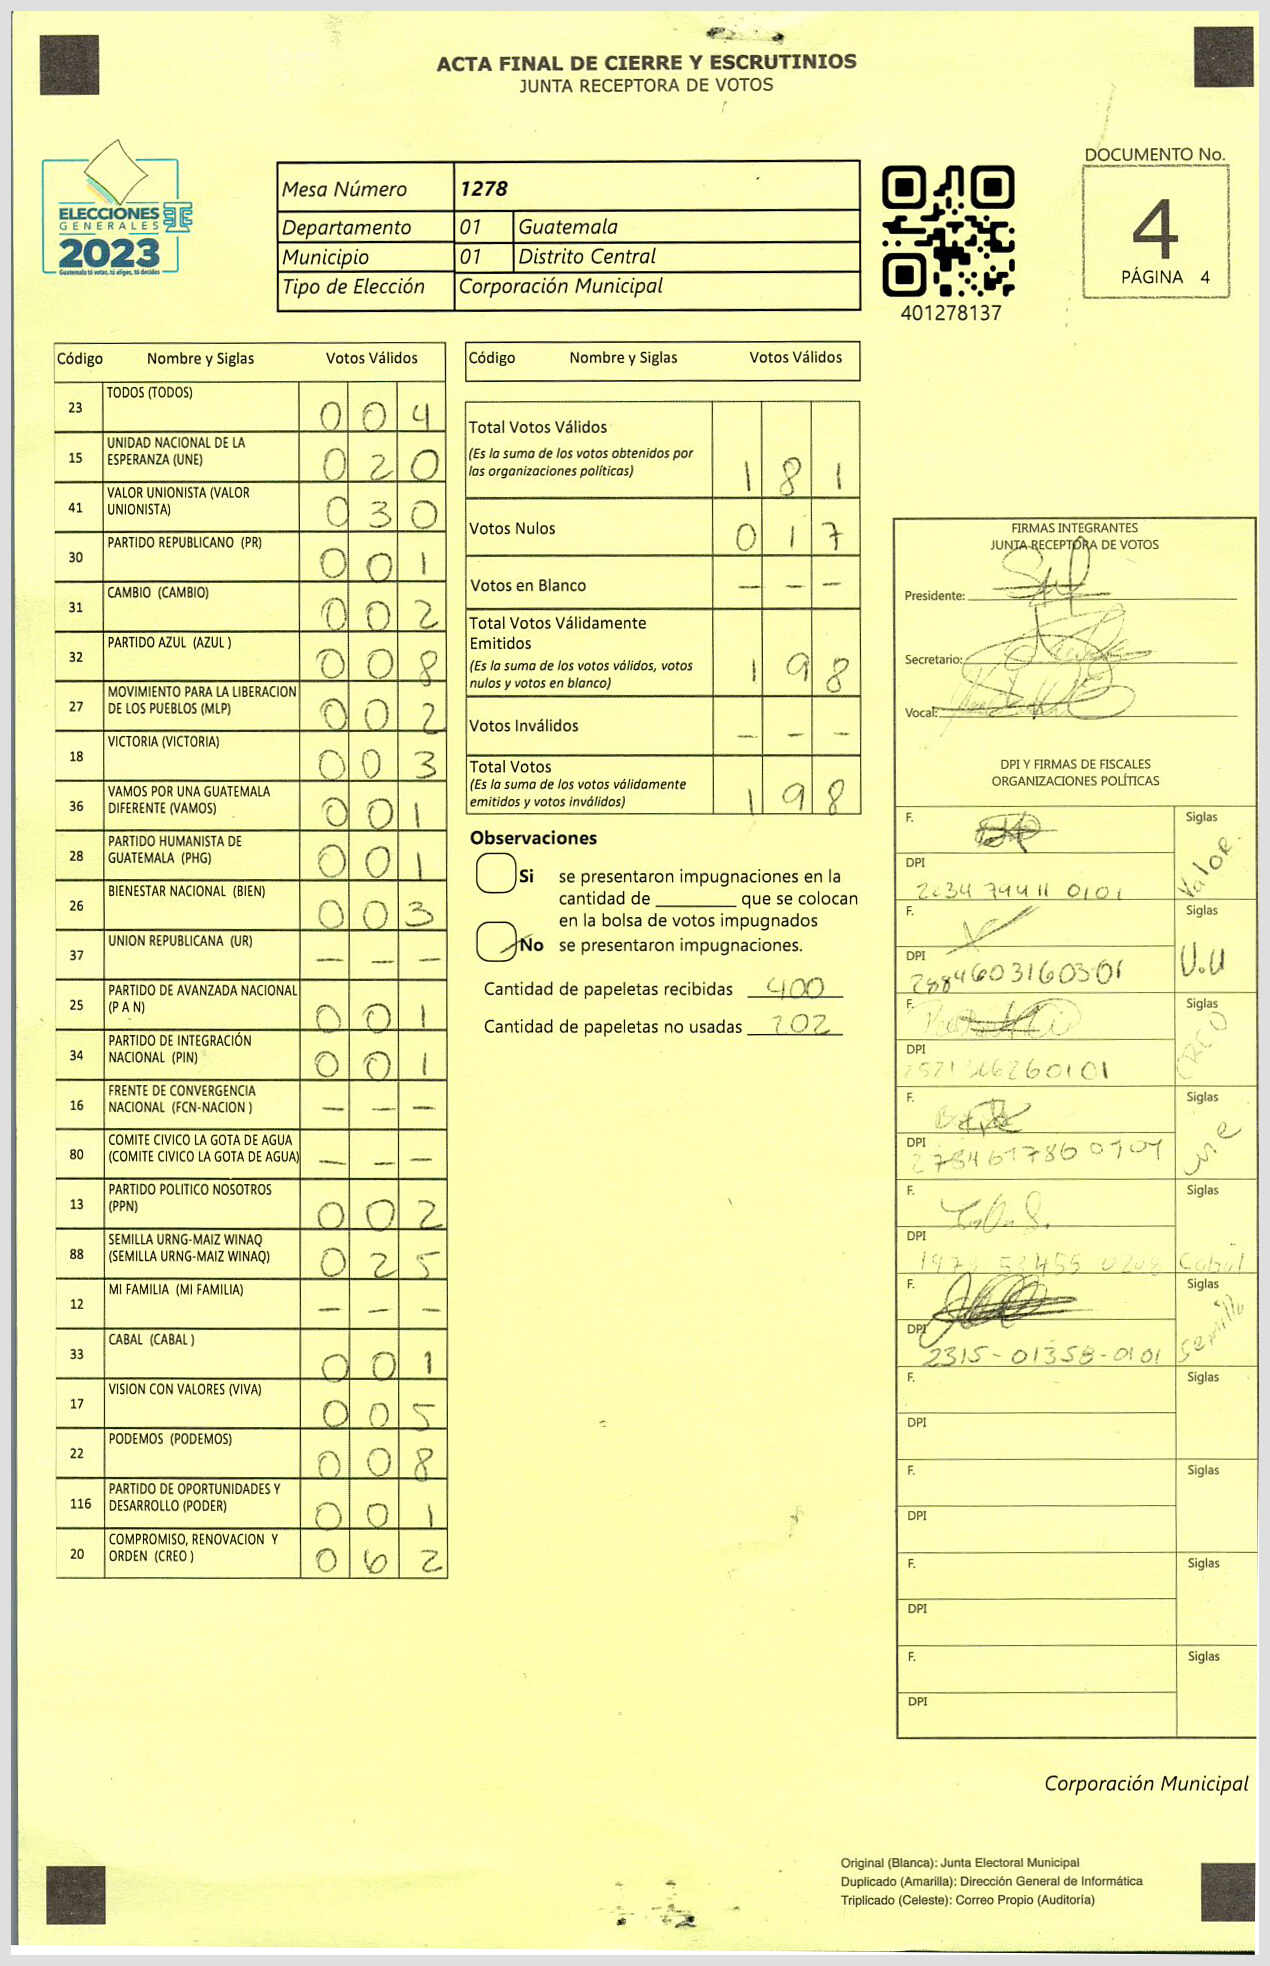 ACTA FINAL DE CIERRE Y ESCRUTINIOS
JUNTA RECEPTORA DE VOTOS
ELECCIONES
GENERALES
2023
Guatemala tú votas, tú eliges, tú decides
Mesa Número 1278
Departamento 01 Guatemala
Municipio 01 Distrito Central
Tipo de Elección Corporación Municipal
401278137
DOCUMENTO No.
4
PÁGINA 4
Código Nombre y Siglas Votos Válidos
23 TODOS (TODOS) 0 0 4
15 UNIDAD NACIONAL DE LA
ESPERANZA (UNE) 0 2 0
41 VALOR UNIONISTA (VALOR
UNIONISTA) 0 3 0
30 PARTIDO REPUBLICANO (PR) 0 0 1
31 CAMBIO (CAMBIO) 0 0 2
32 PARTIDO AZUL (AZUL ) 0 0 8
27 MOVIMIENTO PARA LA LIBERACION
DE LOS PUEBLOS (MLP) 0 0 2
18 VICTORIA (VICTORIA) 0 0 3
36 VAMOS POR UNA GUATEMALA
DIFERENTE (VAMOS) 0 0 1
28 PARTIDO HUMANISTA DE
GUATEMALA (PHG) 0 0 1
26 BIENESTAR NACIONAL (BIEN) 0 0 3
37 UNION REPUBLICANA (UR) – – –
25 PARTIDO DE AVANZADA NACIONAL
(P A N) 0 0 1
34 PARTIDO DE INTEGRACIÓN
NACIONAL (PIN) 0 0 1
16 FRENTE DE CONVERGENCIA
NACIONAL (FCN-NACION ) – – –
80 COMITE CIVICO LA GOTA DE AGUA
(COMITE CIVICO LA GOTA DE AGUA) – – –
13 PARTIDO POLITICO NOSOTROS
(PPN) 0 0 2
88 SEMILLA URNG-MAIZ WINAQ
(SEMILLA URNG-MAIZ WINAQ) 0 2 5
12 MI FAMILIA (MI FAMILIA) – – –
33 CABAL (CABAL ) 0 0 1
17 VISION CON VALORES (VIVA) 0 0 5
22 PODEMOS (PODEMOS) 0 0 8
116 PARTIDO DE OPORTUNIDADES Y
DESARROLLO (PODER) 0 0 1
20 COMPROMISO, RENOVACION Y
ORDEN (CREO ) 0 6 2
Código Nombre y Siglas Votos Válidos
Total Votos Válidos
(Es la suma de los votos obtenidos por
las organizaciones políticas) 1 8 1
Votos Nulos 0 1 7
Votos en Blanco – – –
Total Votos Válidamente
Emitidos
(Es la suma de los votos válidos, votos
nulos y votos en blanco) 1 9 8
Votos Inválidos – – –
Total Votos
(Es la suma de los votos válidamente
emitidos y votos inválidos) 1 9 8
Observaciones
Si se presentaron impugnaciones en la
cantidad de ________ que se colocan
en la bolsa de votos impugnados
No se presentaron impugnaciones.
Cantidad de papeletas recibidas 400
Cantidad de papeletas no usadas 202
FIRMAS INTEGRANTES
JUNTA RECEPTORA DE VOTOS
Presidente:
Secretario:
Vocal:
DPI Y FIRMAS DE FISCALES
ORGANIZACIONES POLÍTICAS
F. Siglas
Valor.
DPI
2634 79411 0101
F. Siglas
U.U
DPI
F. Siglas
DPI
F. Siglas
DPI
F. Siglas
DPI
Cabal
F. Siglas
Semilla
DPI
2315-01358-0101
F. Siglas
DPI
F. Siglas
DPI
F. Siglas
DPI
F. Siglas
DPI
Corporación Municipal
Original (Blanca): Junta Electoral Municipal
Duplicado (Amarilla): Dirección General de Informática
Triplicado (Celeste): Correo Propio (Auditoría)